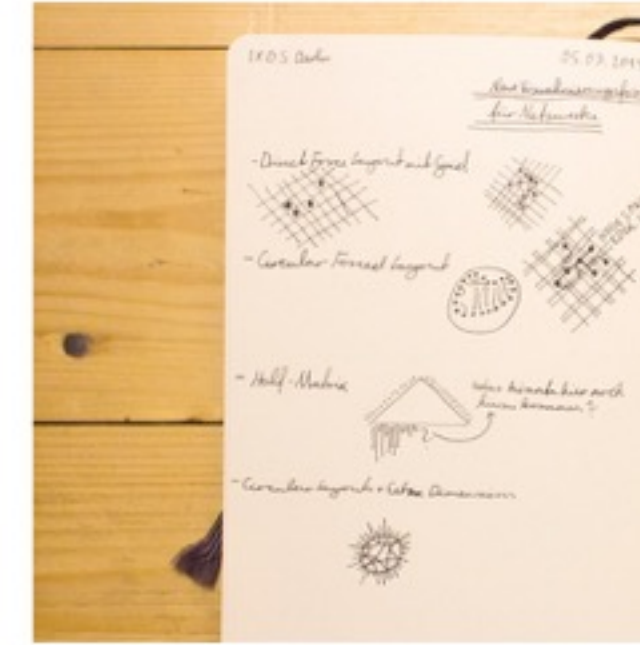 IXDS Berlin
05.07.201
Neue Visualisierungsfor
für Netzwerke
- Direct Force Layout mit Grid
- Circular Forced Layout
- Half-Matrix
Was könnte hier noch
kommen?
- Circular Layout + Extra Dimension